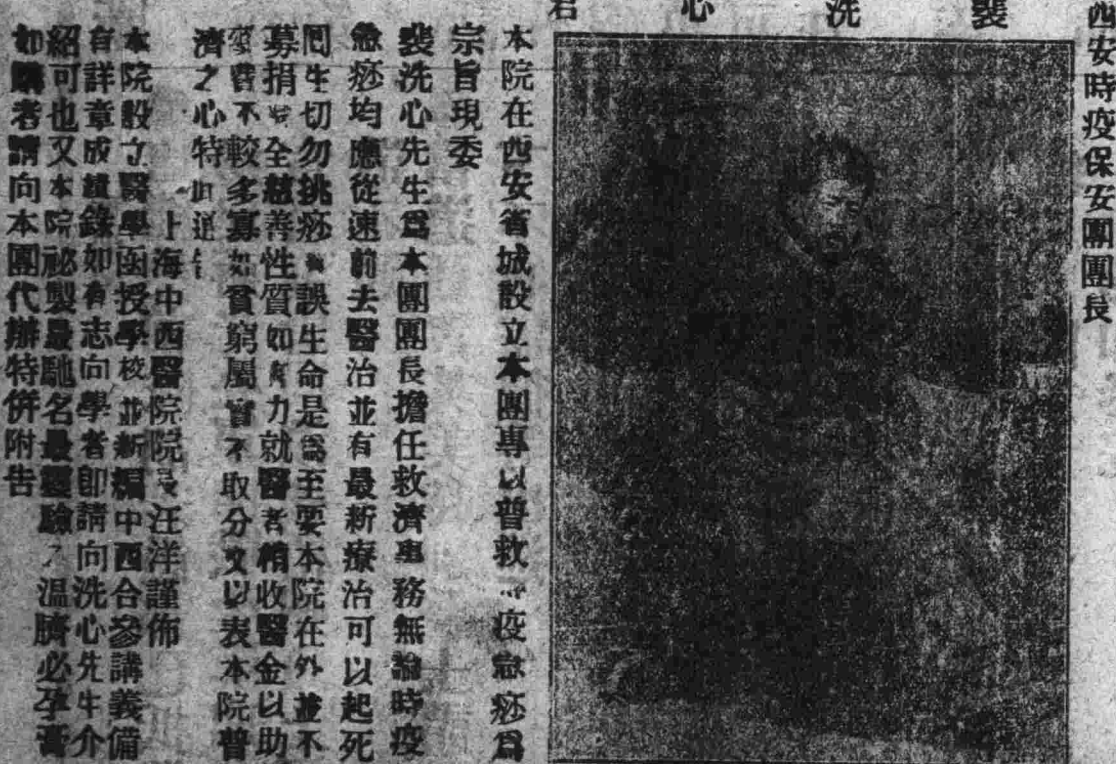 西安時疫保安團團長
裴洗心君
本院在西安省城設立本團專以普救疫急痧爲
宗旨現委
裴洗心先生爲本團團長擔任救濟事務無論時疫
急痧均應從速前去醫治並有最新療治可以起死
回生切勿挑痧誤生命是爲至要本院在外並不
募捐全慈善性質如有力就醫者稍收醫金以助
費不較多寡如貧窮屬實不取分文以表本院普
濟之心特此通告
上海中西醫院院長汪洋謹佈
本院設立醫學函授學校並新編中西合參講義備
有詳章成績錄如有志向學者卽請向洗心先生介
紹可也又本院祕製最馳名最靈驗之温臍必孕膏
如購者請向本團代辦特併附告